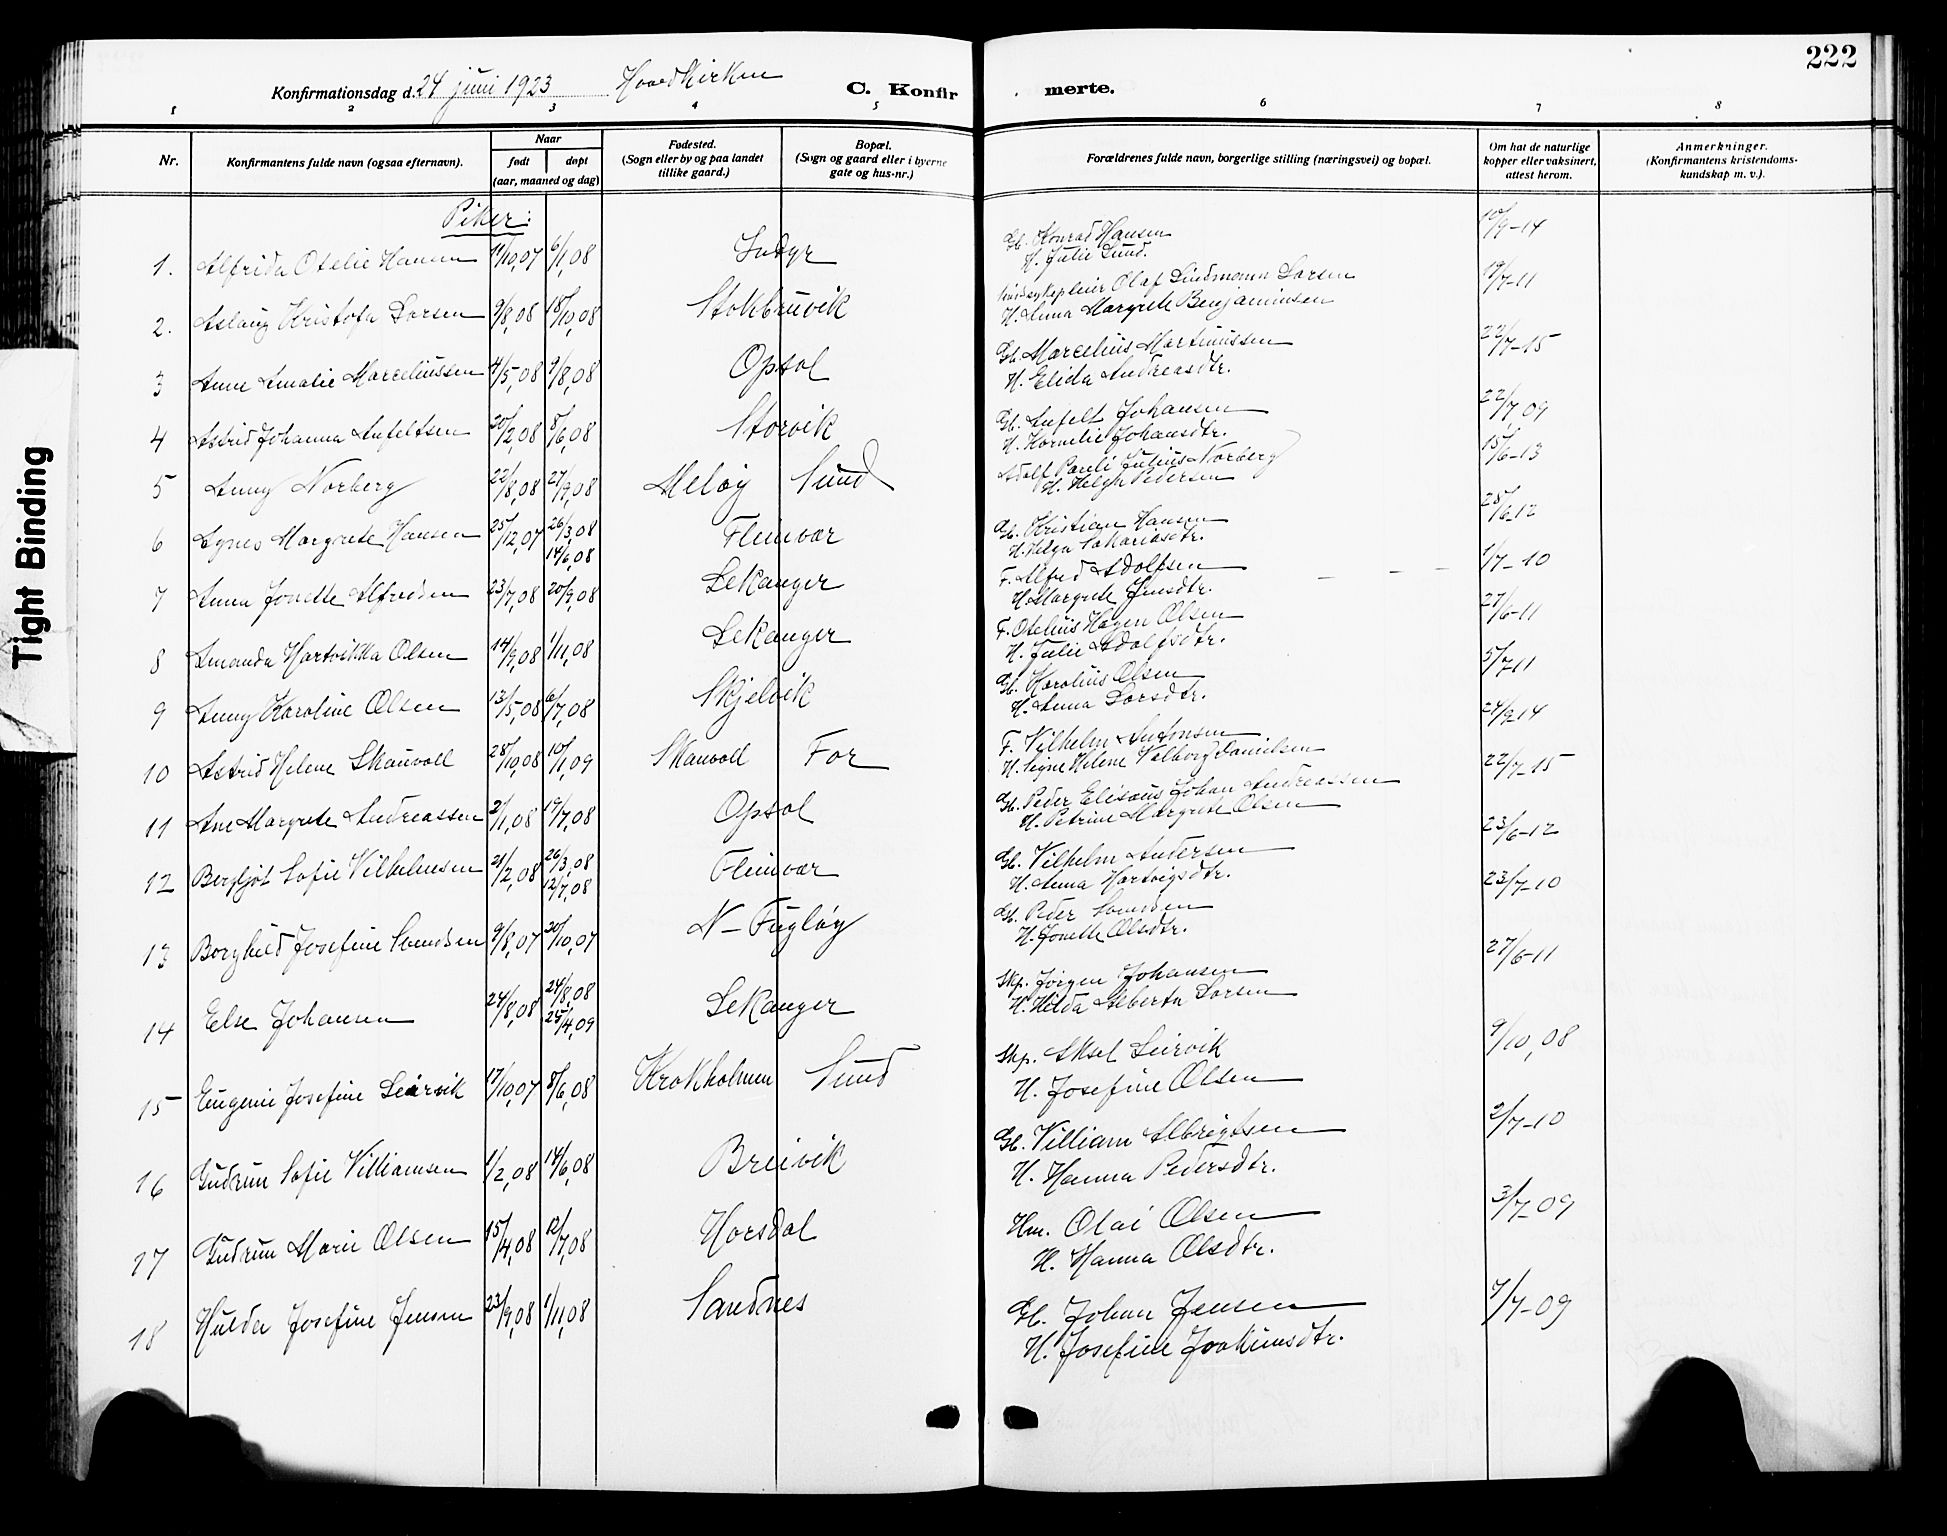 222
Konfirmationsdag d. 24 juni 1923 Hovedkirken C. Konfirmerte.
1 2 3 4 5 6 7 8
Nr. Konfirmantens fulde navn (ogsaa efternavn). Naar født døpt (aar, maaned og dag) Fødested. (Sogn eller by og paa landet tillike gaard.) Bopæl. (Sogn og gaard eller i byerne gate og hus-nr.) Forældrenes fulde navn, borgerlige stilling (næringsvei) og bopæl. Om hat de naturlige kopper eller vaksinert, attest herom. Anmerkninger. (Konfirmantens kristendomskundskap m. v.).
Piker:
1. Alfrida Otelie Hansen 11/10,07 6/1,08 Indyr Gb. Konrad Hansen 10/9-14
H. Julie Lund.
2. Aslaug Kristofa Larsen 9/8,08 18/10,08 Stokbruvik Sindsykepleier Olaf Lindmann Larsen 19/7-11
H. Anna Margrete Benjaminsen
3 Anne Amalie Marceliussen 4/5,08 9/8,08 Opsal Gb. Marcelius Martinussen 22/7-15
H. Elida Andreasdtr.
4 Astrid Johanna Anfeltsen 20/2,08 8/6,08 Storvik Gb. Anfelt Johansen 22/7,09
H. Kornelie Johansdtr.
5 Anny Norberg 22/8,08 27/9,08 Meløy Sund Adolf Pauli Julius Norberg 15/6-13
H. Helga Pedersen
6 Agnes Margrete Hansen 25/12,07 26/3,08 14/6,08 Fleinvær Gb. Kristian Hansen 28/6-12
H. Helga Sakariasdtr.
7 Anna Jonette Alfredsen 23/7,08 20/9,08 Lekanger F. Alfred Adolfsen 1/7-10
H. Margrete Jensdtr.
8 Amanda Hartvikka Olsen 14/9,08 1/11,08 Lekanger F. Otelius Hagen Olsen 27/6-11
H. Julie Adolfsdtr.
9 Anny Karoline Olsen 13/5,08 6/7,08 Skjelvik Gb. Karolius Olsen 5/7-11
H. Anna Larsdtr.
10 Astrid Helene Skauvoll 28/10,08 10/1,09 Skauvoll For F. Vilhelm Antonsen 24/9-14
H. Signe Helene Valborg Danielsen
11 Ane Margrete Andreassen 2/1,08 19/7,08 Opsal Gb. Peder Elisæus Johan Andreassen 22/7-15
H. Petrine Margrete Olsen
12 Bergljot Sofie Vilhelmsen 21/2,08 26/3,08 12/7,08 Fleinvær Gb. Vilhelm Andersen 23/6-12
H. Anna Hartvigsdtr.
13 Borghild Josefine Svendsen 9/8,07 20/10,07 N-Fugløy Gb. Peder Svendsen 23/7-10
H. Jonette Olsdtr.
14 Else Johansen 24/8,08 24/8,08 25/4,09 Lekanger Skp. Jørgen Johansen 27/6-11
H. Hilda Alberta Larsen
15 Eugenie Josefine Leirvik 17/10,07 8/6,08 Krokholmen Sund Skp. Aksel Leirvik 9/10,08
H. Josefine Olsen
16 Gudrun Sofie Villiamsen 1/2,08 14/6,08 Breivik Gb. Villiam Albrigtsen 2/7-10
H. Hanna Pedersdtr.
17 Gudrun Marie Olsen 15/4,08 12/7,08 Horsdal Hm. Olai Olsen 3/7-09
H. Hanna Olsdtr.
18 Hulda Josefine Jensen 23/9,08 1/11,08 Sandnes Gb. Johan Jensen 7/7-09
H. Josefine Joakimsdtr.
Tight Binding